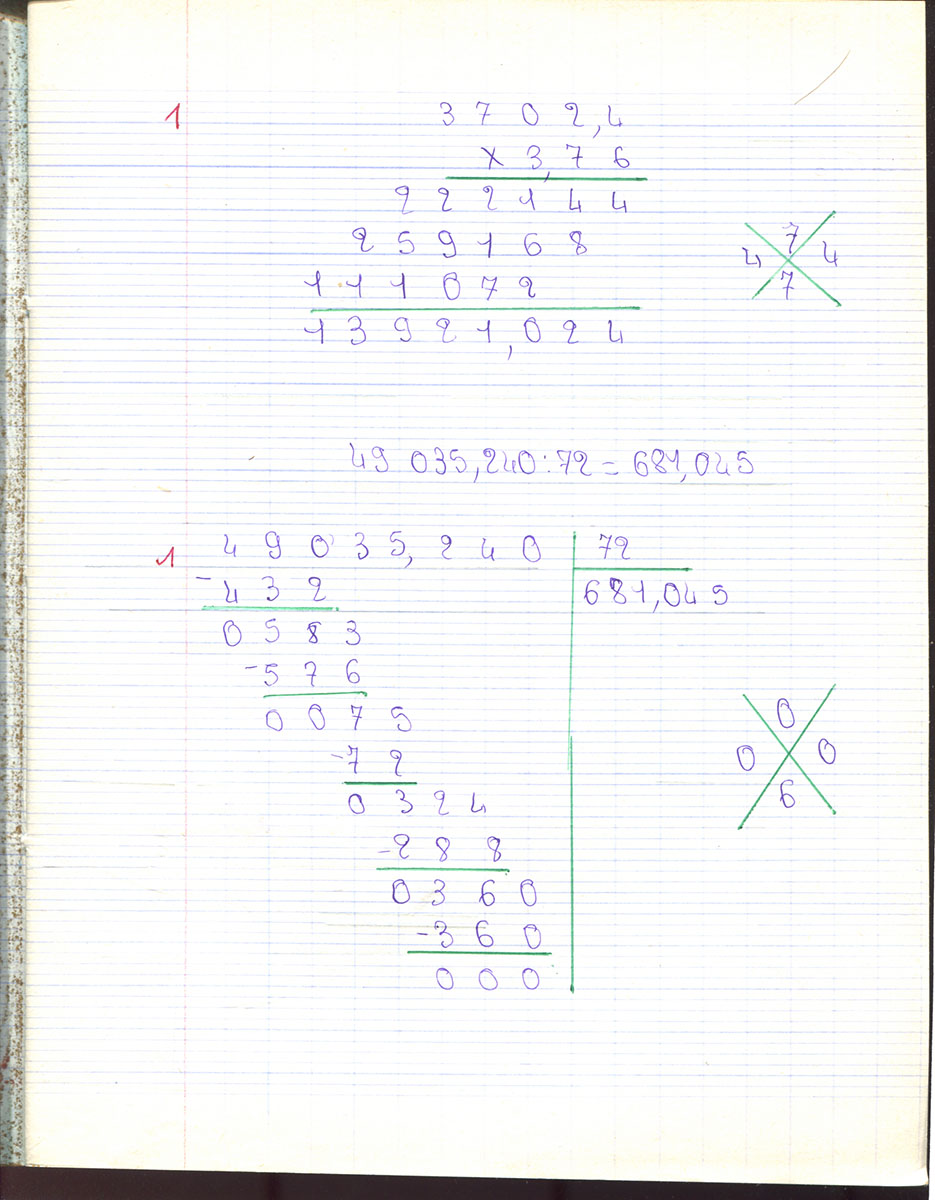 1
3 7 0 2,4
x 3,7 6
2 2 2 1 4 4
2 5 9 1 6 8
1 1 1 0 7 2
1 3 9 2 1,0 2 4
7
4 4
7
49 035,240 : 72 = 681,045
1
4 9 0 3 5, 2 4 0 72
- 4 3 2 681,045
0 5 8 3
- 5 7 6
0 0 7 5
- 7 2
0 3 2 4
- 2 8 8
0 3 6 0
- 3 6 0
0 0 0
0
0 0
6